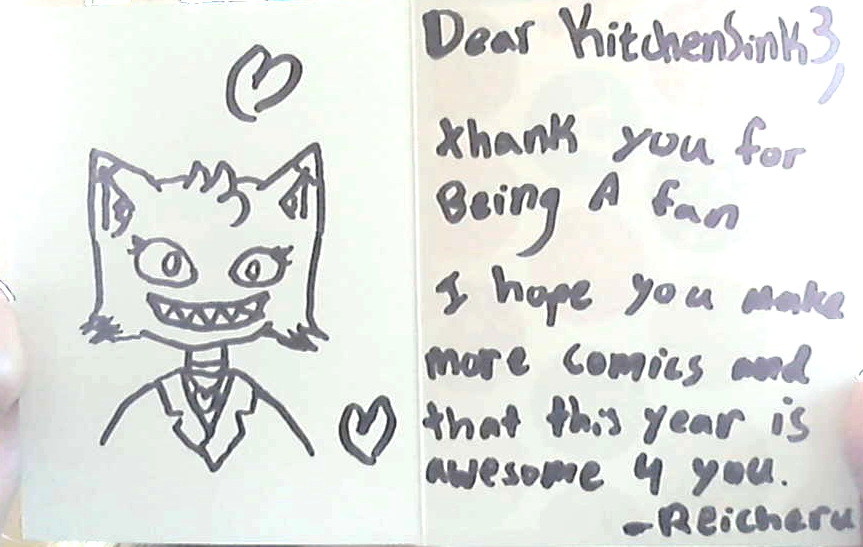 Dear KitchenSink3,
thank you for
Being A fan
I hope you make
more comics and
that this year is
awesome 4 you.
-Reicheru